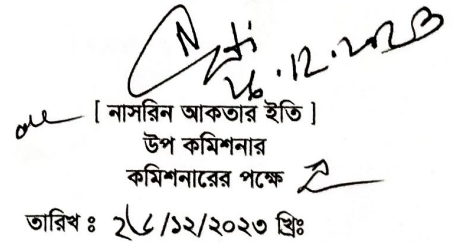 26.12.2023
[ নাসরিন আকতার ইতি ]
উপ কমিশনার
কমিশনারের পক্ষে
তারিখ ঃ ২৬/১২/২০২৩ খ্রিঃ